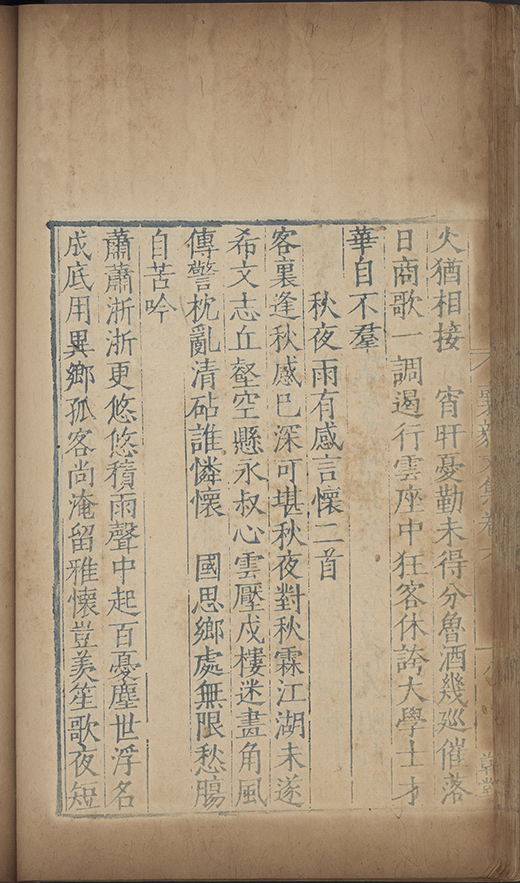 火猶相接　宵旰憂勤未得分魯酒幾廵催落
日商歌一調遏行雲座中狂客休誇大學士才
華自不羣
秋夜雨有感言懷二首
客裏逢秋感已深可堪秋夜對秋霖江湖未遂
希文志丘壑空懸永叔心雲壓戍樓迷畫角風
傳警枕亂清砧誰憐懷　國思鄉處無限愁膓
自苦吟
蕭蕭淅淅更悠悠積雨聲中起百憂塵世浮名
成底用異鄉孤客尚淹留雅懷豈羡笙歌夜短